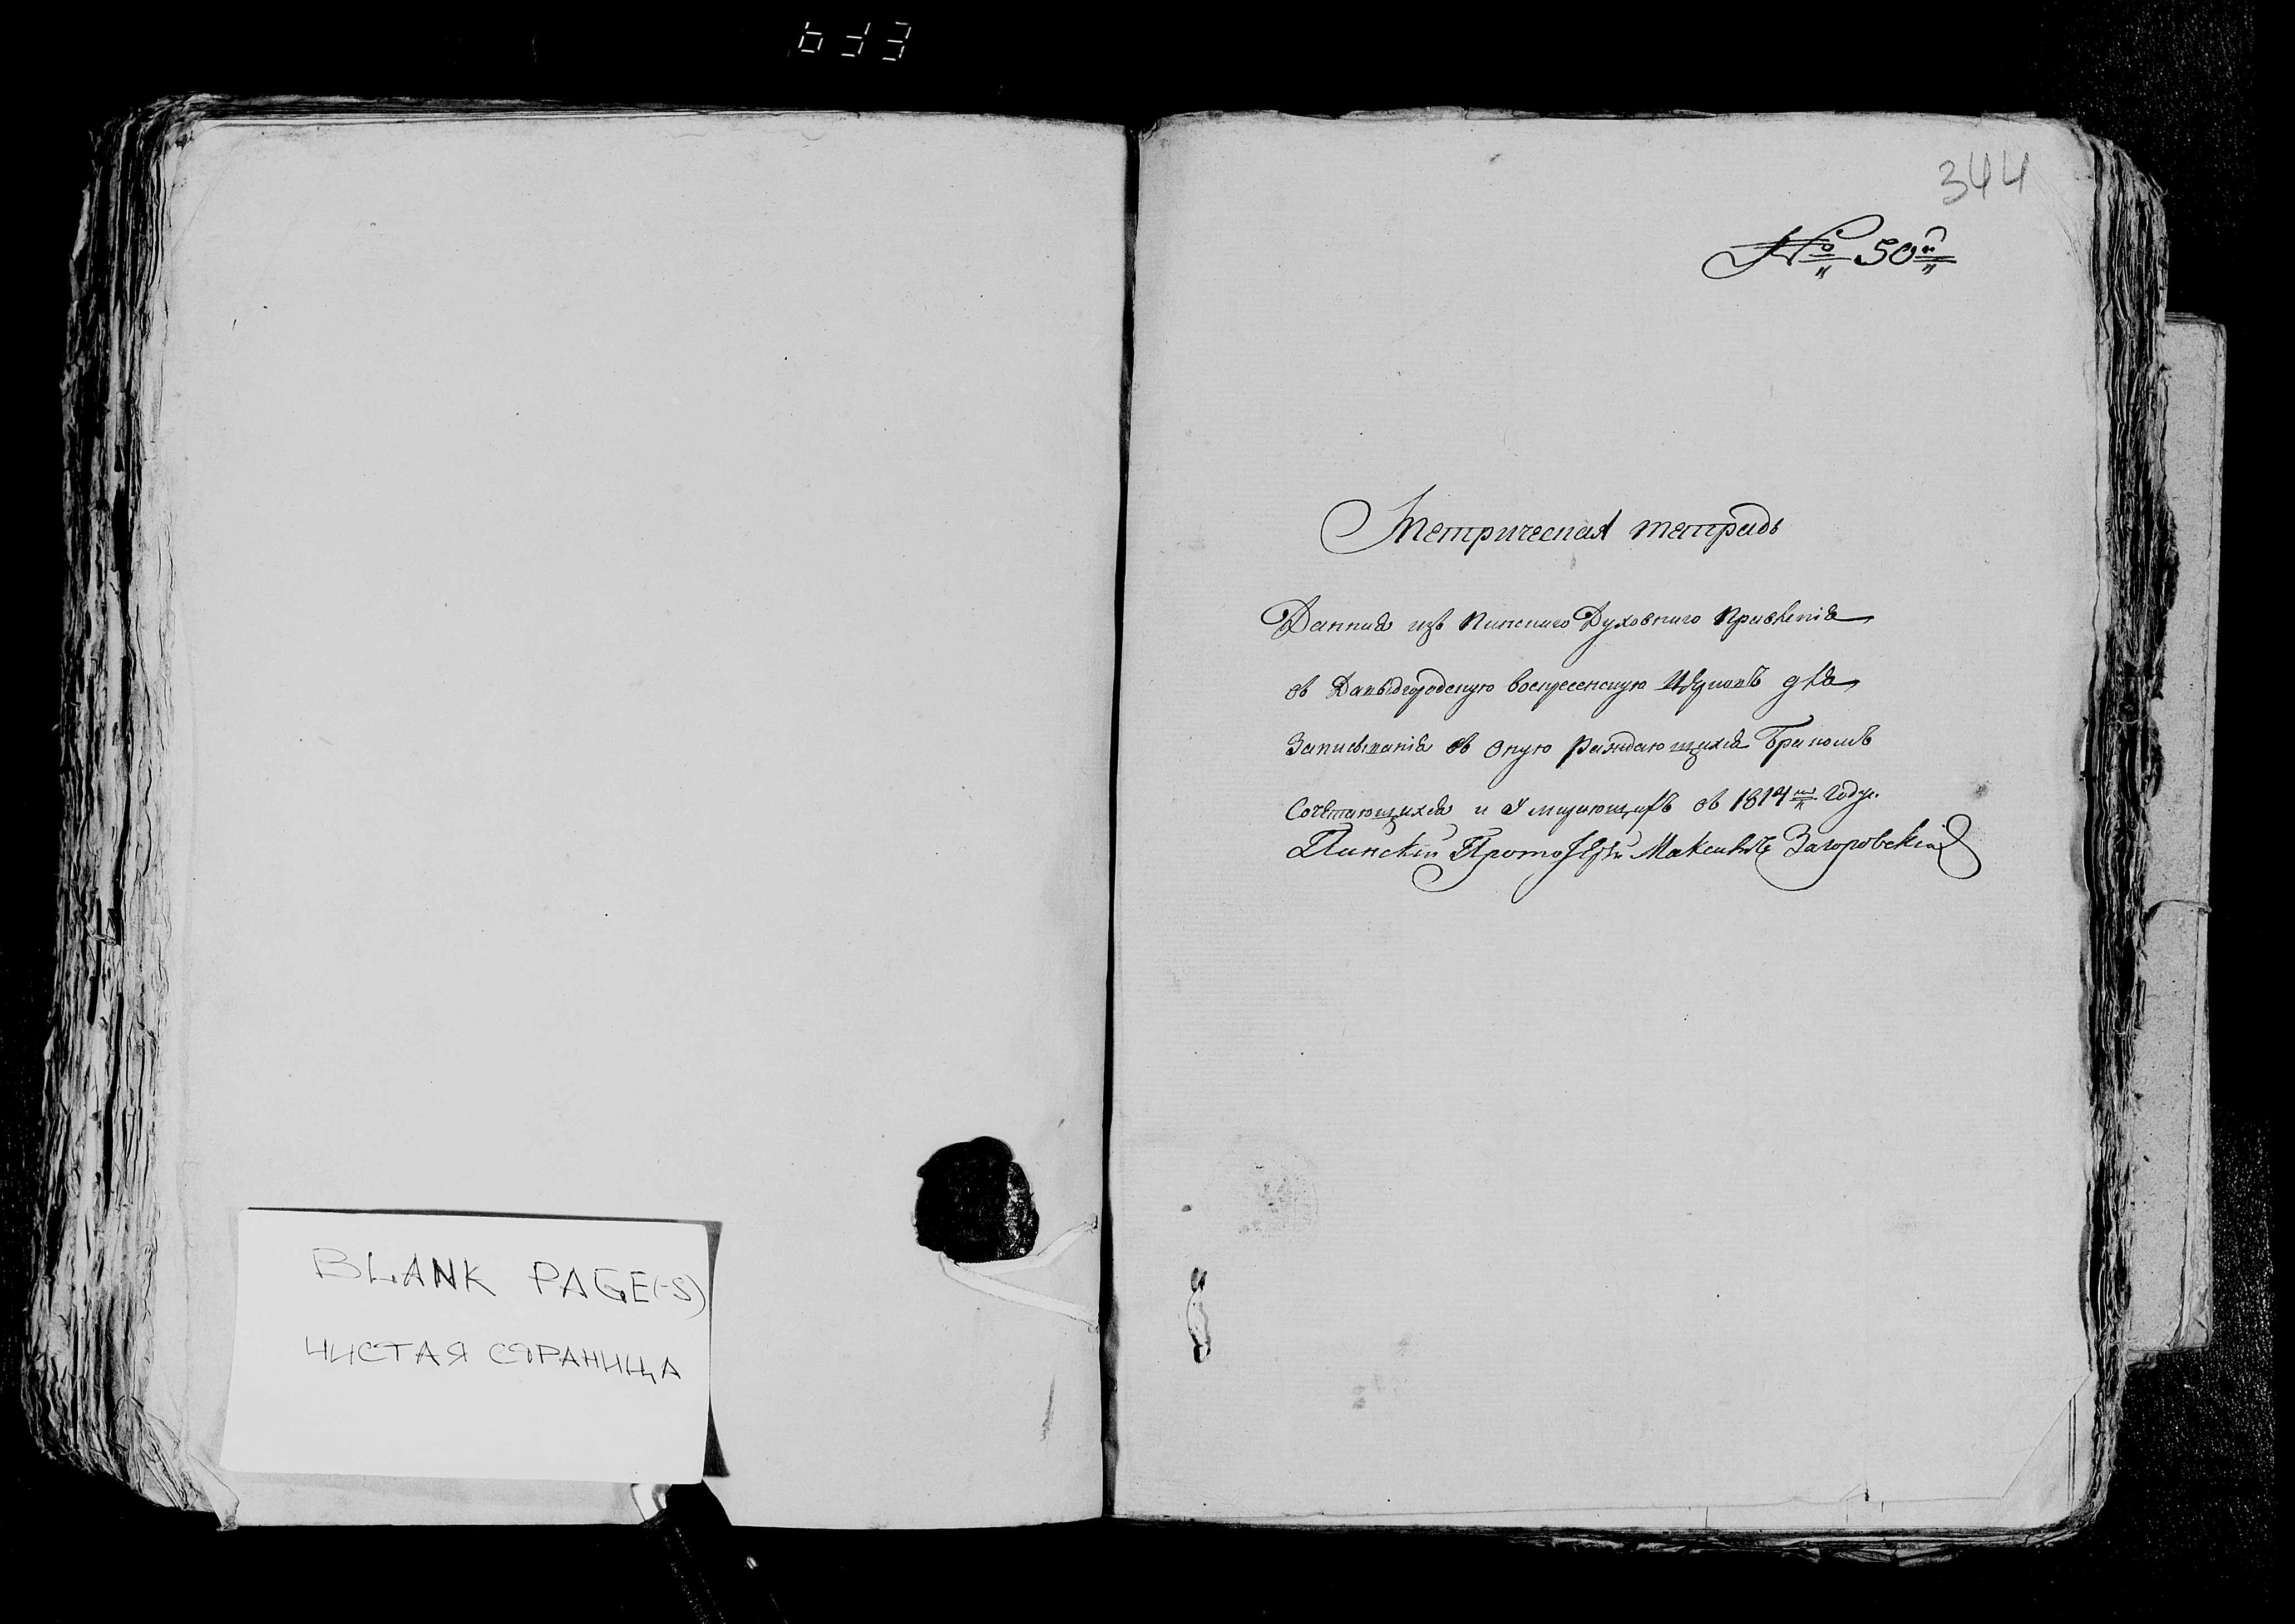 BLANK PAGE(-S)
ЧИСТАЯ СТРАНИЦА
344
№ 50й
Метрическая тетрадь
Данная изъ Пинскаго Духовнаго Правленія
въ Давыдгородскую воскресенскую Церковь для
Записыванія въ оную раждающихся Бракомъ
Сочетающихся и Умирающихъ въ 1814м Году.
Пинскій Протоіерей Максимъ Загоровскій